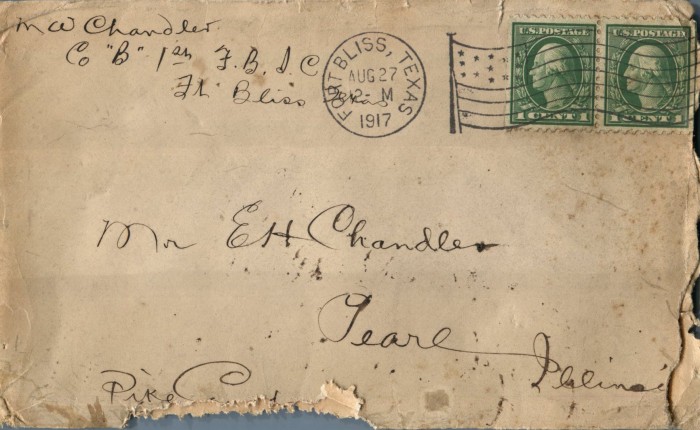 M W Chandler
Co "B" 1st F. B. S. C
Ft Bliss Texas
FORT BLISS, TEXAS
AUG 27
12- M
1917
U.S. POSTAGE
1 CENT 1
U.S. POSTAGE
1 CENT 1
Mr E H Chandler
Pearl
Illinois
Pike